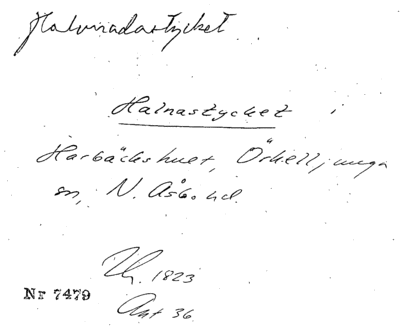 Halvnadastycket
Halnastycket i
Harbäckshult, Örkelljunga
sn, N. Åsbo hd.
1823
Nr 7479
Art 36